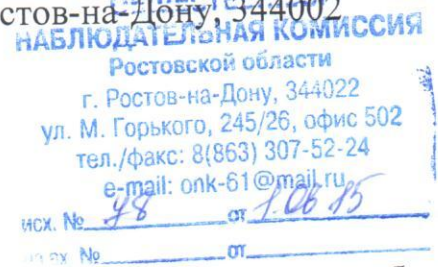 стов-на-Дону, 344002
НАБЛЮДАТЕЛЬНАЯ КОМИССИЯ
Ростовской области
г. Ростов-на-Дону, 344022
ул. М. Горького, 245/26, офис 502
тел./факс: 8(863) 307-52-24
e-mail: onk-61@mail.ru
исх. № 78 от 1.06 15
вх № от